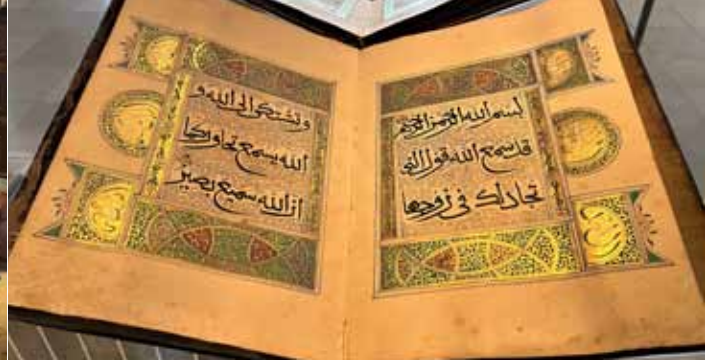 بسم الله الرحمن الرحيم
قد سمع الله قول التي
تجادلك في زوجها
وتشتكي إلى الله و
الله يسمع تحاوركما
إن الله سميع بصير